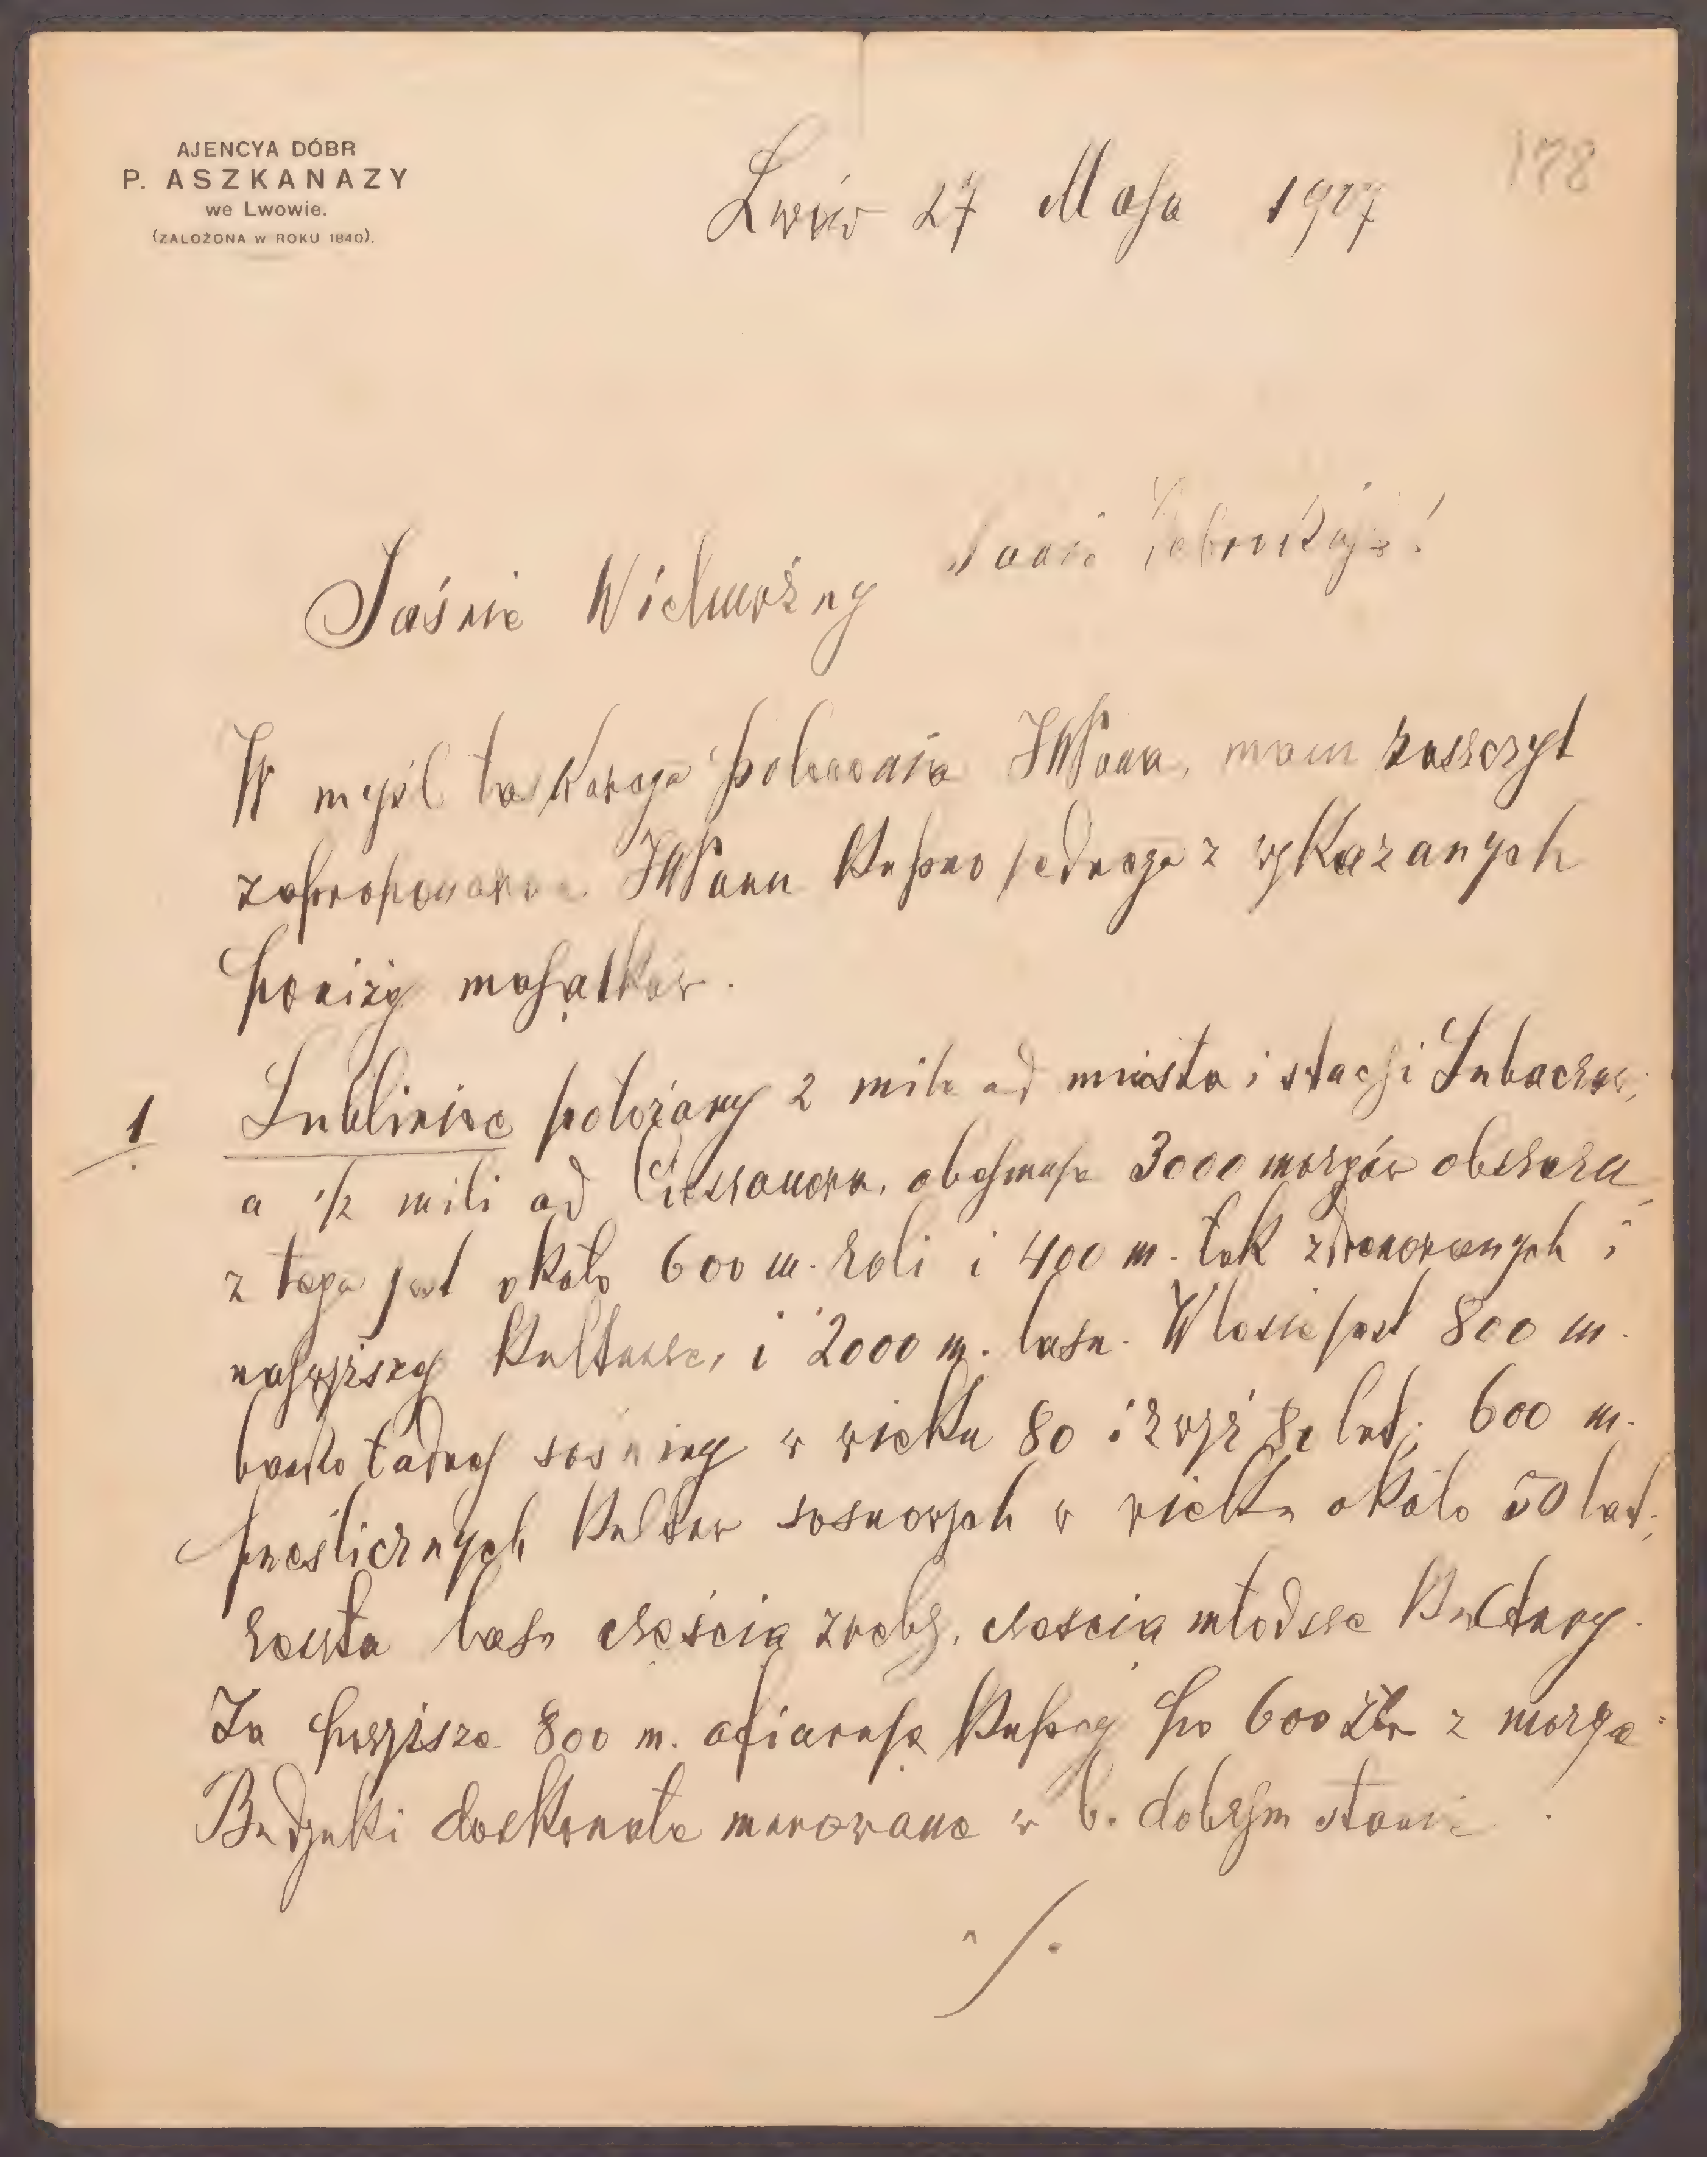 AJENCYA DÓBR
P. ASZKANAZY
we Lwowie.
(ZAŁOŻONA W ROKU 1840).
178
Lwów 27 Maja 1907
Jaśnie Wielmożny Panie Dobrodzieju!
W myśl łaskawego polecenia JWPana, mam zaszczyt
zaproponować JWPanu kupno jednego z wykazanych
poniżej majątków.
1. Lubliniec położony 2 mile od miasta i stacji Lubaczów,
a 1/2 mili od Cieszanowa, obejmuje 3000 morgów obszaru,
z tego jest około 600 m. roli i 400 m. łąk zdrenowanych i
najwyższej kulturze, i 2000 m. lasu. W lesie jest 800 m.
bardzo ładnej sośniny w wieku 80 i zwyż 80 lat; 600 m.
prześlicznych kultur sosnowych w wieku około 50 lat;
reszta lasu częścią zręby, częścią młodsze kultury.
Za powyższe 800 m. ofiarują kupcy po 600 Złr z morga.
Budynki doskonałe murowane w b. dobrym stanie.
./.